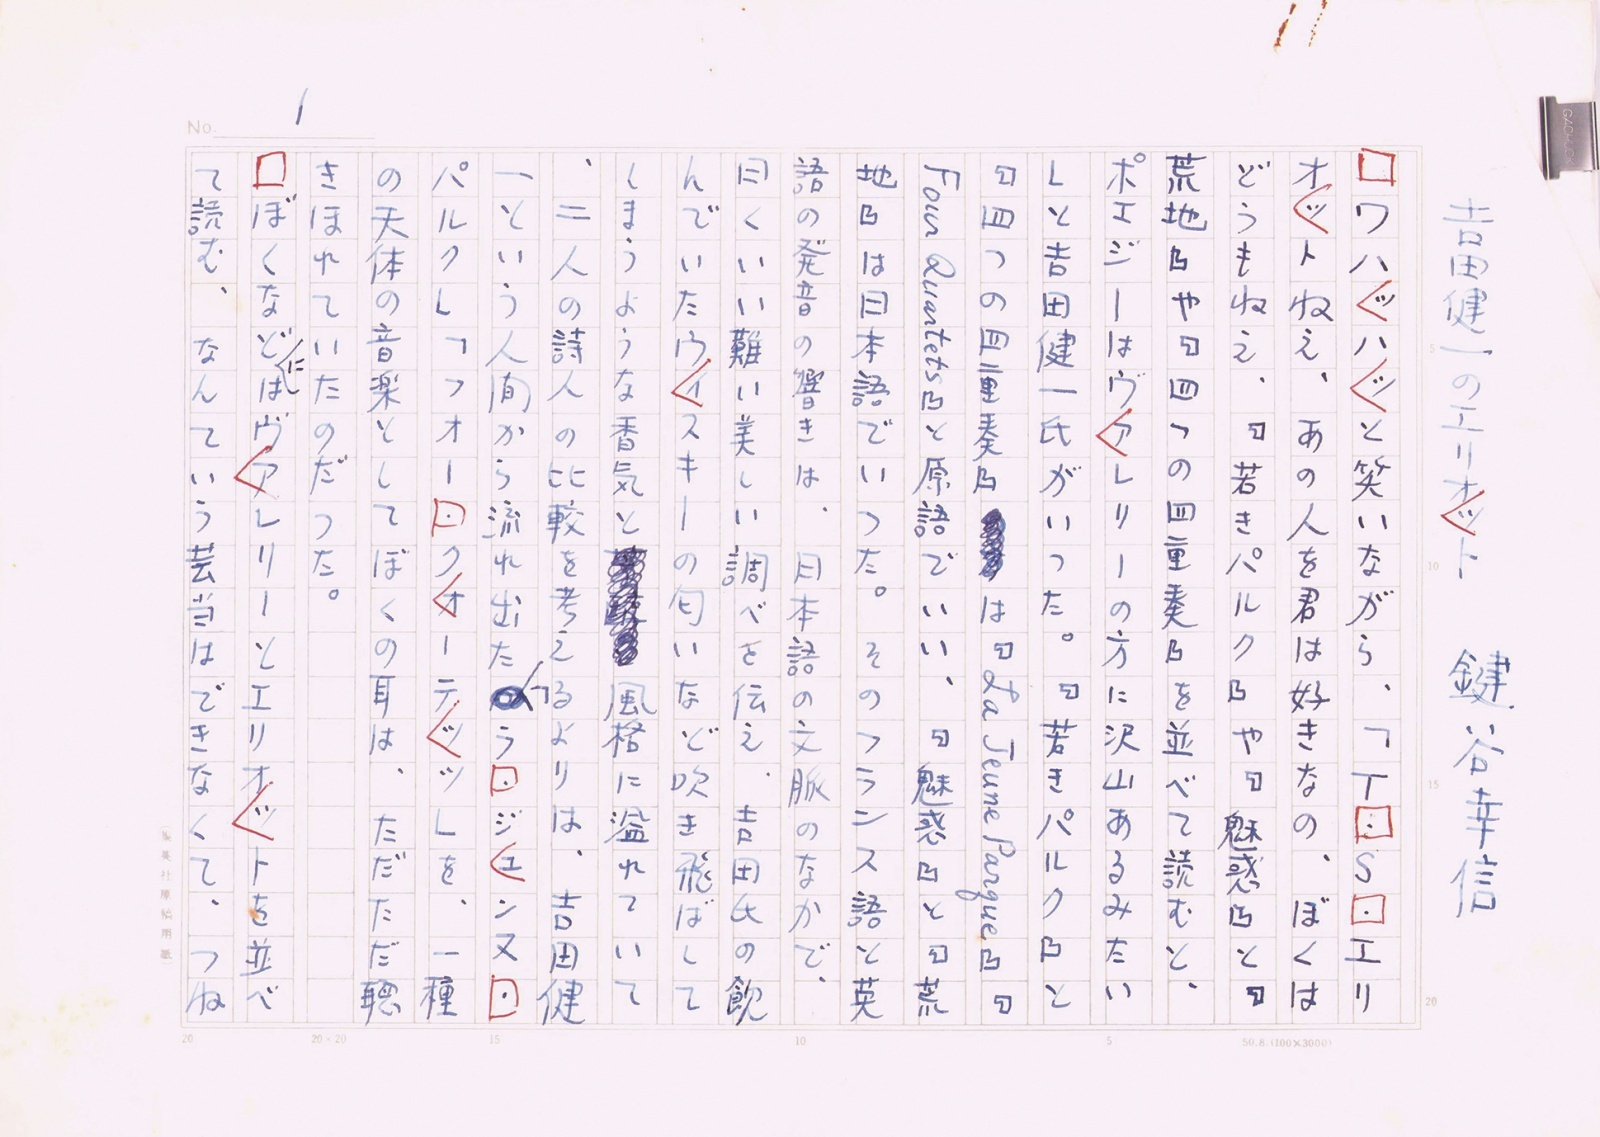 No. 1
吉田健一のエリオット　鍵谷幸信
ワハッハッと笑いながら、「T・S・エリ
オットねえ、あの人を君は好きなの、ぼくは
どうもねえ、『若きパルク』や『魅惑』と『
荒地』や『四つの四重奏』を並べて読むと、
ポエジーはヴァレリーの方に沢山あるみたい
」と吉田健一氏がいった。『若きパルク』と
『四つの四重奏』は『La Jeune Parque』『
Four Quartets』と原語でいい、『魅惑』と『荒
地』は日本語でいった。そのフランス語と英
語の発音の響きは、日本語の文脈のなかで、
曰くいい難い美しい調べを伝え、吉田氏の飲
んでいたウィスキーの匂いなど吹き飛ばして
しまうような香気と風格に溢れていて
、二人の詩人の比較を考えるよりは、吉田健
一という人間から流れ出た「ラ・ジュンヌ・
パルク」「フォー・クォーテッツ」を、一種
の天体の音楽としてぼくの耳は、ただただ聴
きほれていたのだった。
ぼくなどにはヴァレリーとエリオットを並べ
て読む、なんていう芸当はできなくて、つね
5
10
15
20
20
20×20
15
10
5
50.8.(100×3000)
(集英社原稿用紙)